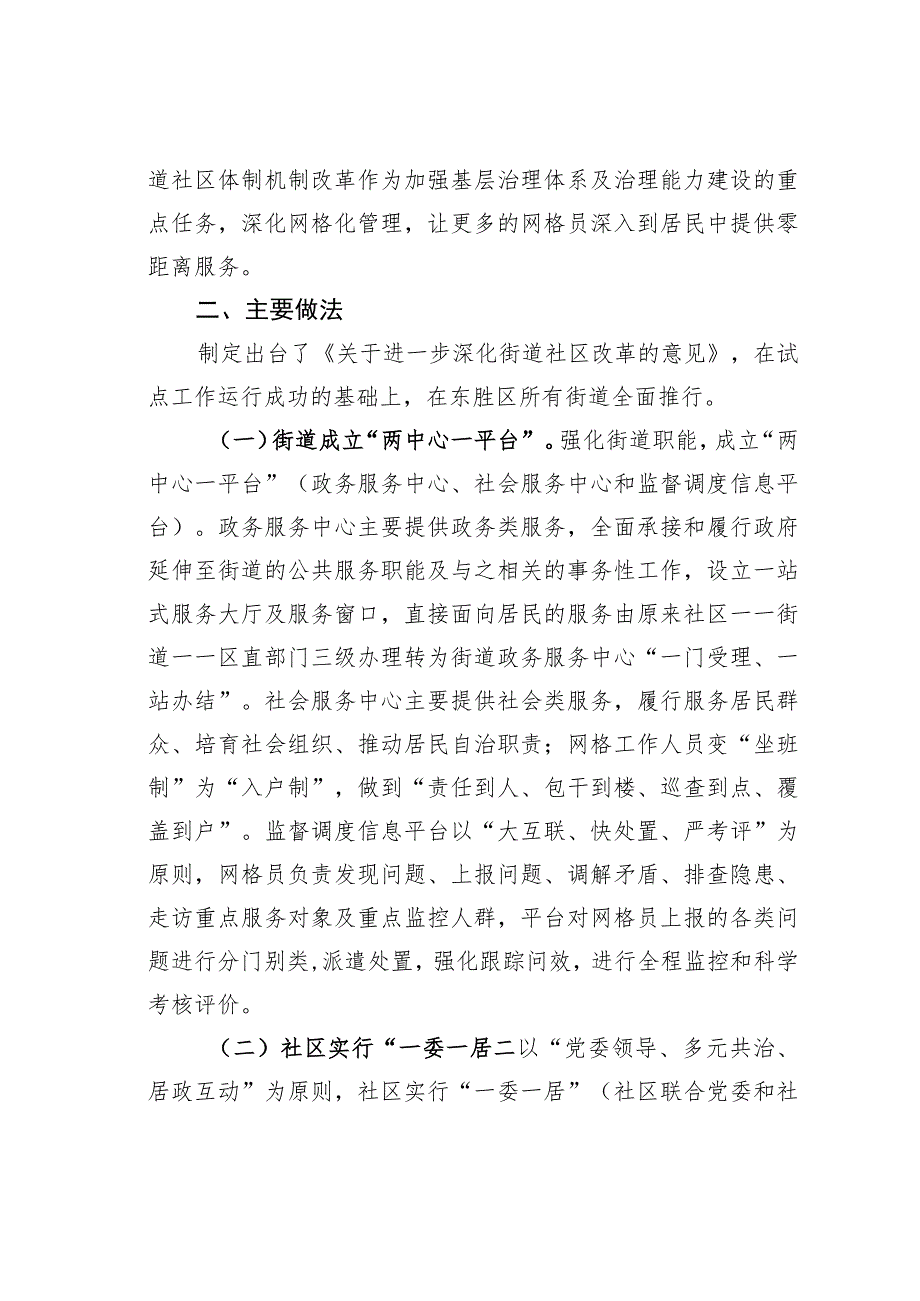 道社区体制机制改革作为加强基层治理体系及治理能力建设的重
点任务，深化网格化管理，让更多的网格员深入到居民中提供零
距离服务。
二、主要做法
制定出台了《关于进一步深化街道社区改革的意见》，在试
点工作运行成功的基础上，在东胜区所有街道全面推行。
（一）街道成立“两中心一平台”。强化街道职能，成立“两
中心一平台”（政务服务中心、社会服务中心和监督调度信息平
台）。政务服务中心主要提供政务类服务，全面承接和履行政府
延伸至街道的公共服务职能及与之相关的事务性工作，设立一站
式服务大厅及服务窗口，直接面向居民的服务由原来社区一一街
道一一区直部门三级办理转为街道政务服务中心“一门受理、一
站办结”。社会服务中心主要提供社会类服务，履行服务居民群
众、培育社会组织、推动居民自治职责；网格工作人员变“坐班
制”为“入户制”，做到“责任到人、包干到楼、巡查到点、覆
盖到户”。监督调度信息平台以“大互联、快处置、严考评”为
原则，网格员负责发现问题、上报问题、调解矛盾、排查隐患、
走访重点服务对象及重点监控人群，平台对网格员上报的各类问
题进行分门别类,派遣处置，强化跟踪问效，进行全程监控和科学
考核评价。
（二）社区实行“一委一居二以“党委领导、多元共治、
居政互动”为原则，社区实行“一委一居”（社区联合党委和社